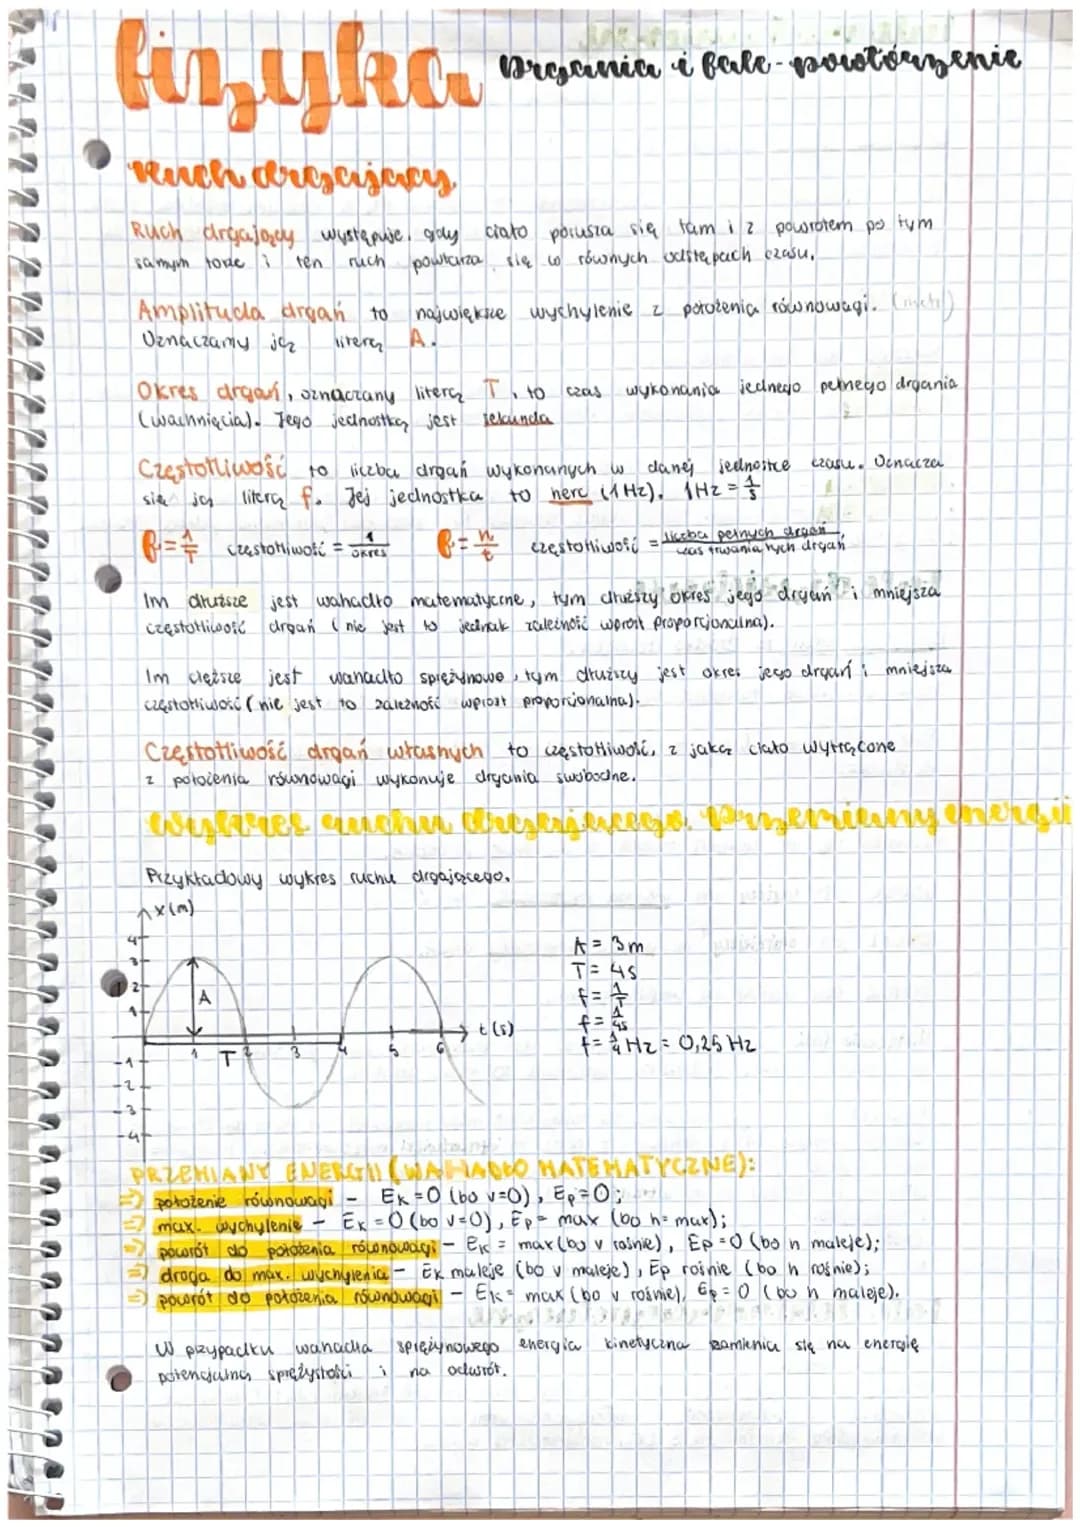 fizyka Drgania i fale - powtórzenie
Ruch drgający
Ruch drgający występuje, gdy ciało porusza się tam i z powrotem po tym
samym torze i ten ruch powtarza się w równych odstępach czasu.
Amplituda drgań to największe wychylenie z położenia równowagi. (metr)
Oznaczamy ją literą A.
Okres drgań, oznaczany literą T, to czas wykonania jednego pełnego drgania
(wachnięcia). Jego jednostką jest sekunda
Częstotliwość to liczba drgań wykonanych w danej jednostce czasu. Oznacza
się ją literą f. Jej jednostka to herc (1Hz). 1Hz = 1/s
f = 1/T częstotliwość = 1/okres f = n/t częstotliwość = liczba pełnych drgań/czas trwania tych drgań
Im dłuższe jest wahadło matematyczne, tym dłuższy okres jego drgań i mniejsza
częstotliwość drgań (nie jest to jednak zależność wprost proporcjonalna).
Im cięższe jest wahadło sprężynowe, tym dłuższy jest okres jego drgań i mniejsza
częstotliwość (nie jest to zależność wprost proporcjonalna).
Częstotliwość drgań własnych to częstotliwość, z jaką ciało wytrącone
z położenia równowagi wykonuje drgania swobodne.
Wykres ruchu drgającego. Przemiany energii
Przykładowy wykres ruchu drgającego.
x(m)
4
3
2
1
-1
-2
-3
-4
A
T
1 2 3 4 5 6
t(s)
A = 3m
T = 4s
f = 1/T
f = 1/4s
f = 1/4 Hz = 0,25 Hz
PRZEMIANY ENERGII (WAHADŁO MATEMATYCZNE):
⇒ położenie równowagi - Ek = 0 (bo v=0), Ep = 0;
⇒ max. wychylenie - Ek = 0 (bo v=0), Ep = max (bo h = max);
⇒ powrót do położenia równowagi - Ek = max (bo v rośnie), Ep = 0 (bo h maleje);
⇒ droga do max. wychylenia - Ek maleje (bo v maleje), Ep rośnie (bo h rośnie);
⇒ powrót do położenia równowagi - Ek = max (bo v rośnie), Ep = 0 (bo h maleje).
W przypadku wahadła sprężynowego energia kinetyczna zamienia się na energię
potencjalną sprężystości i na odwrót.